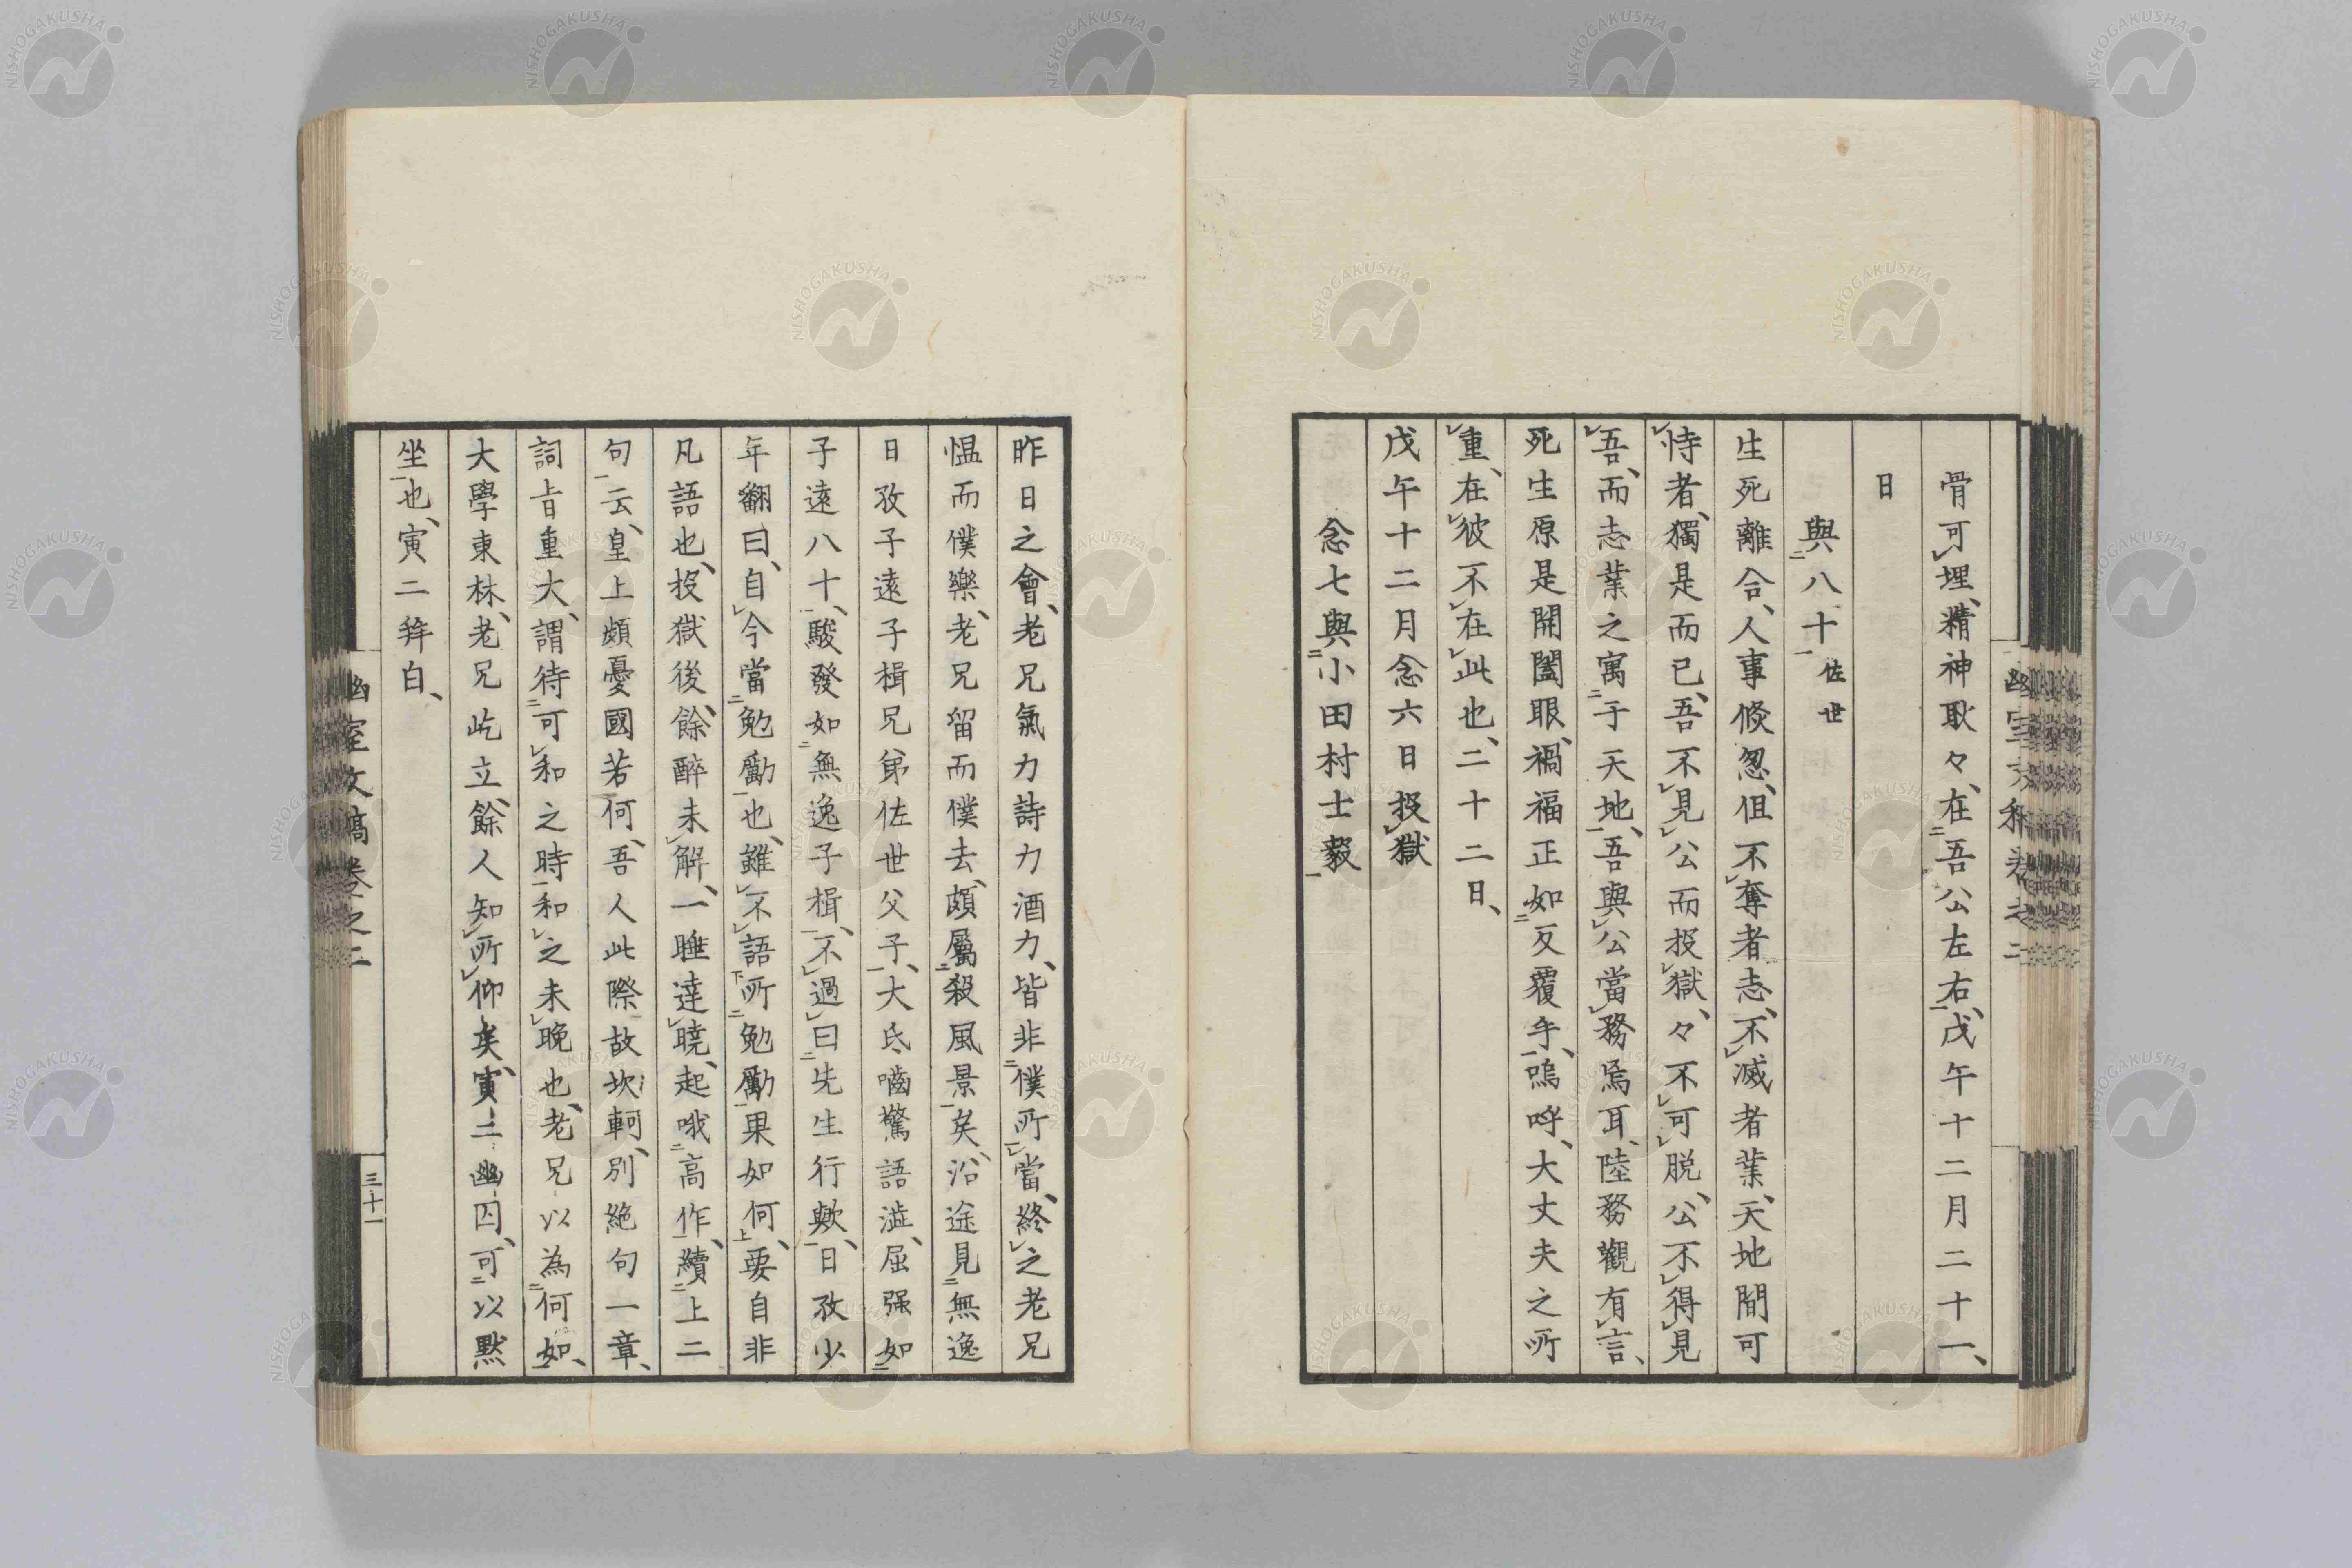 骨可埋、精神耿々、在吾公左右、戊午十二月二十一、
日
與八十 佐世
生死離合、人事倏忽、但不奪者志、不滅者業、天地間可
恃者、獨是而已、吾不見公而投獄、々不可脱、公不得見
吾、而志業之寓于天地、吾與公當務焉耳、陸務觀有言、
死生原是開闔眼、禍福正如反覆手、嗚呼、大丈夫之所
重、在彼不在此也、二十二日、
戊午十二月念六日投獄
念七與小田村士毅
昨日之會、老兄氣力詩力酒力、皆非僕所當、終之老兄
愠而僕樂、老兄留而僕去、頗屬殺風景矣、沿途見無逸
日孜子遠子楫兄弟佐世父子、大氐嚙驚語澁、屈强如
子遠八十、駿發如無逸子楫、不過曰先生行歟、日孜少
年翻曰、自今當勉勵也、雖不語所勉勵果如何、要自非
凡語也、投獄後、餘醉未解、一睡達曉、起哦高作、續上二
句云、皇上頗憂國若何、吾人此際故坎軻、別絶句一章、
詞旨重大、謂待可和之時和之未晚也、老兄以為何如、
大學東林、老兄屹立、餘人知所仰矣、寅二幽囚、可以默
坐也、寅二拜白、
幽室文稿卷之二
三十一